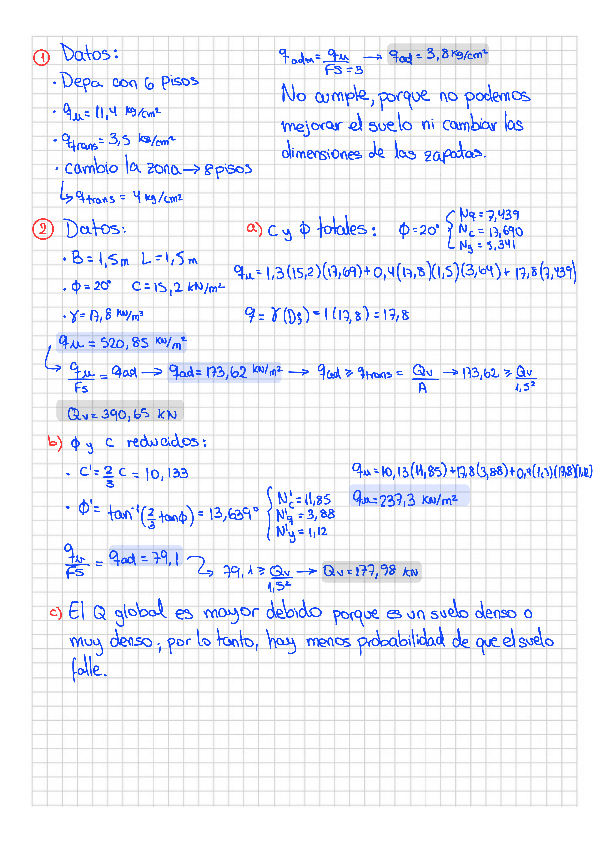 ① Datos:
· Depa con 6 pisos
· qu = 11,4 kg/cm²
· qtrans = 3,5 kg/cm²
· cambio la zona → 8 pisos
↳ qtrans = 4 kg/cm²
qadm = qu/FS=3 → qad = 3,8 kg/cm²
No cumple, porque no podemos
mejorar el suelo ni cambiar las
dimensiones de las zapatas.
② Datos:
· B = 1,5 m L = 1,5 m
· Φ = 20° C = 15,2 kN/m²
· γ = 17,8 kN/m³
a) C y Φ totales: Φ = 20° { Nq = 7,439
Nc = 17,690
Ng = 5,341
qu = 1,3(15,2)(17,69) + 0,4(17,8)(1,5)(3,64) + 17,8(7,439)
q = γ(Df) = 1(17,8) = 17,8
qu = 520,85 kN/m²
↳ qu/Fs = qad → qad = 173,62 kN/m² → qad ≥ qtrans = Qv/A → 173,62 ≥ Qv/1,5²
Qv = 390,65 KN
b) Φ y c reducidos:
· C' = 2/3 C = 10,133
· Φ' = tan⁻¹(2/3 tanΦ) = 13,639° { N'c = 11,85
N'q = 3,88
N'y = 1,12
qu = 10,13(11,85) + 17,8(3,88) + 0,4(1,5)(17,8)(1,12)
qu = 237,3 KN/m²
qu/FS = qad = 79,1
↳ 79,1 ≥ Qv/1,5² → Qv = 177,98 KN
c) El Q global es mayor debido porque es un suelo denso o
muy denso; por lo tanto, hay menos probabilidad de que el suelo
falle.